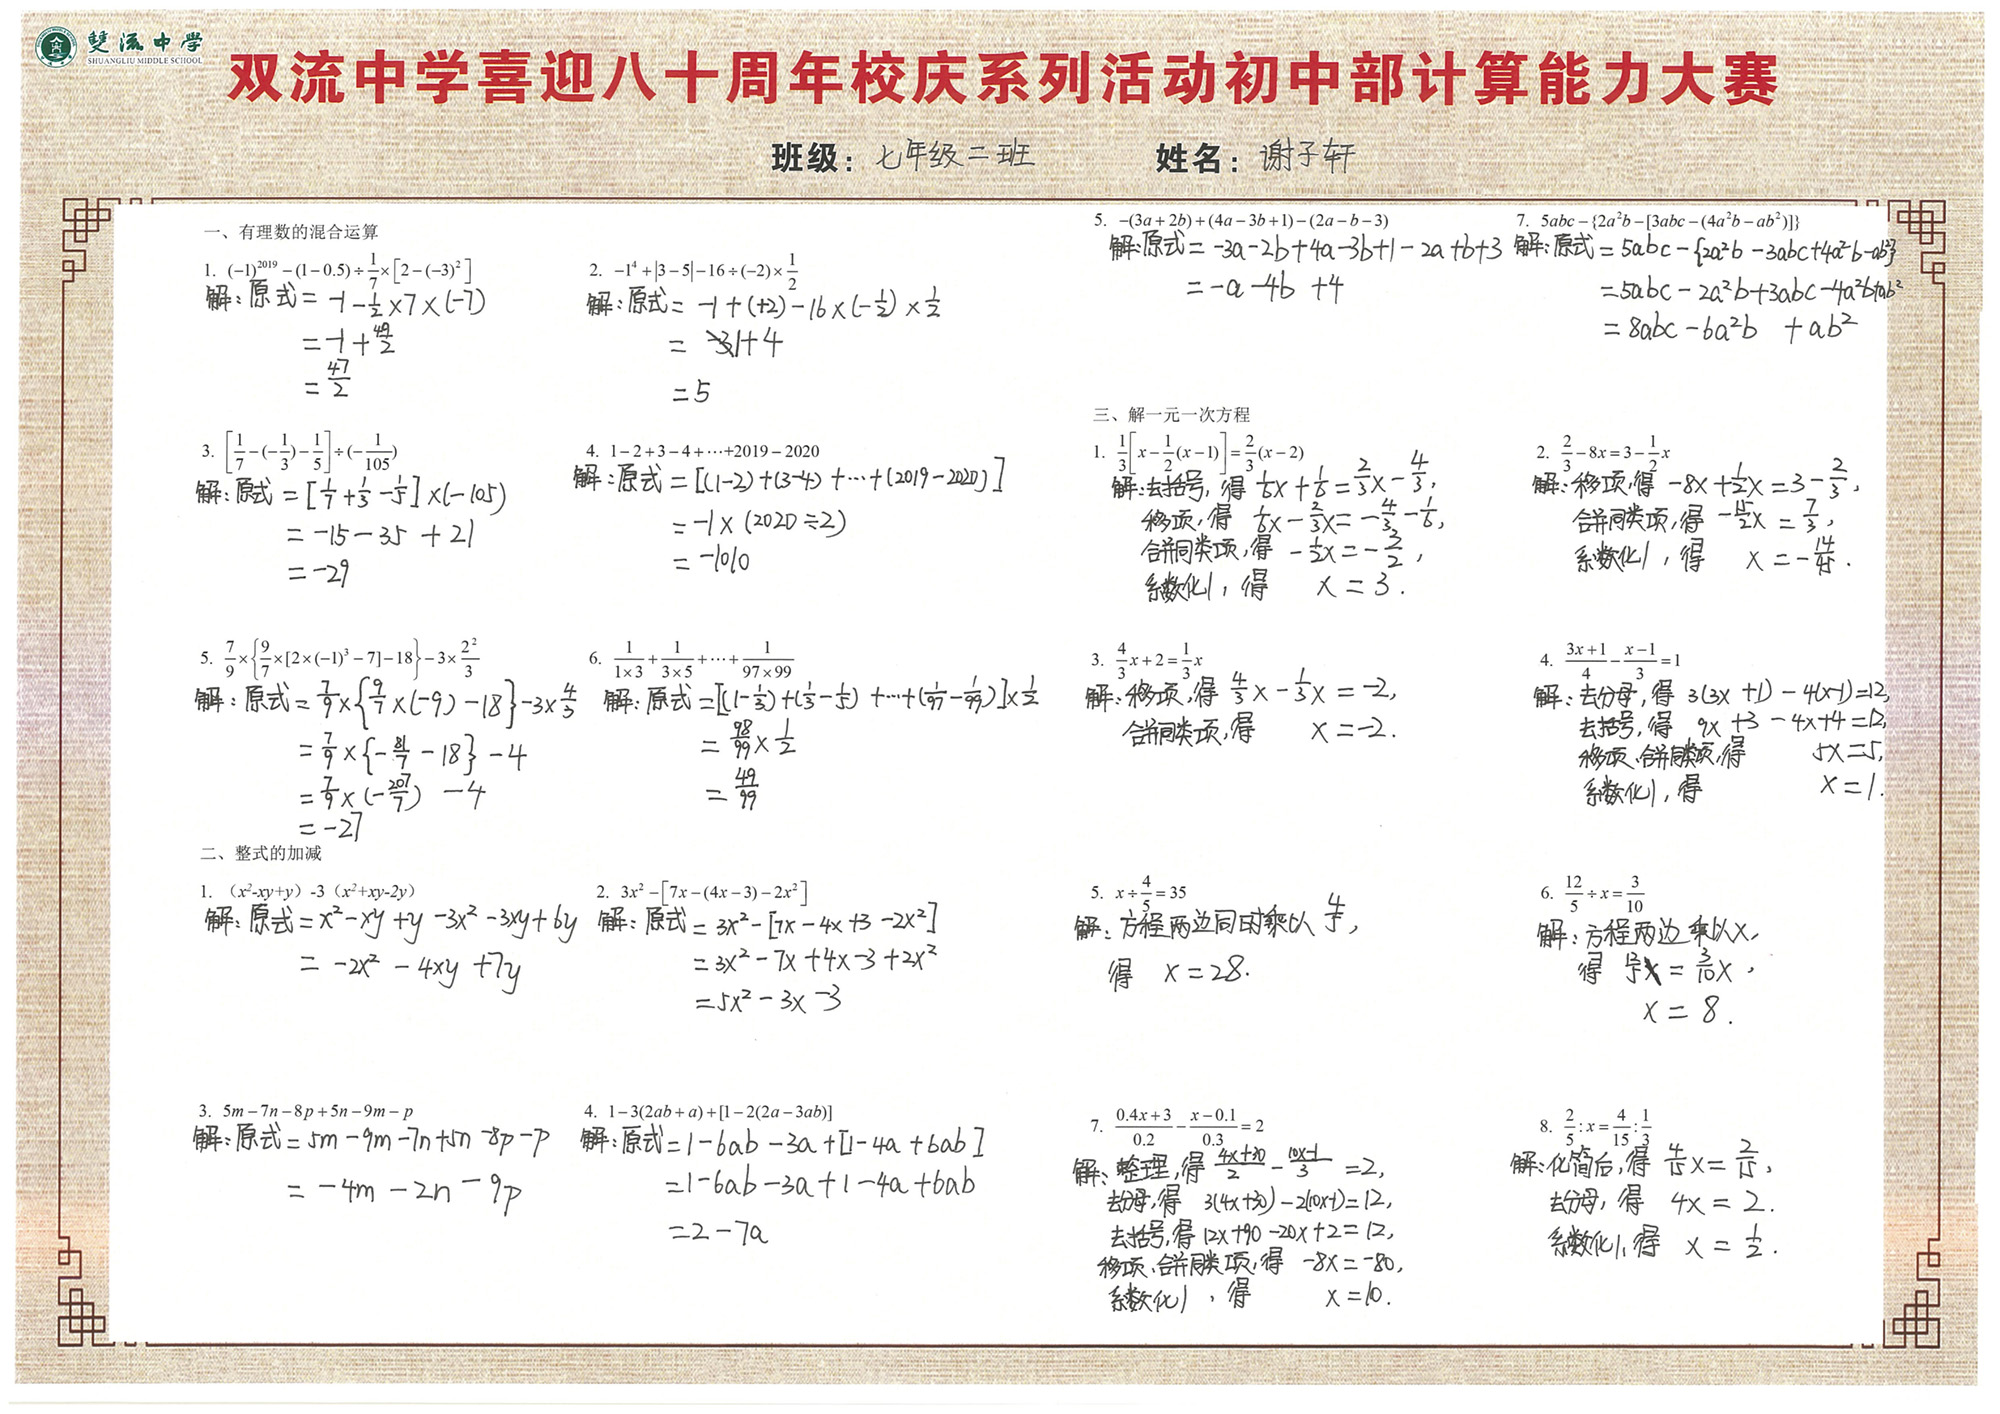 雙流中学
SHUANGLIU MIDDLE SCHOOL
双流中学喜迎八十周年校庆系列活动初中部计算能力大赛
班级：七年级二班 姓名：谢子轩
一、有理数的混合运算
1. (−1)^2019 − (1−0.5) ÷ 1/7 × [2−(−3)²]
解：原式 = −1 − 1/2 × 7 × (−7)
= −1 + 49/2
= 47/2
2. −1⁴ + |3−5| − 16 ÷ (−2) × 1/2
解：原式 = −1 + (+2) − 16 × (−1/2) × 1/2
= 1 + 4
= 5
3. [1/7 − (−1/3) − 1/5] ÷ (−1/105)
解：原式 = [1/7 + 1/3 − 1/5] × (−105)
= −15 − 35 + 21
= −29
4. 1−2+3−4+⋯+2019−2020
解：原式 = [(1−2)+(3−4)+⋯+(2019−2020)]
= −1 × (2020÷2)
= −1010
5. 7/9 × {9/7 × [2×(−1)³−7]−18} − 3 × 2²/3
解：原式 = 7/9 × {9/7 × (−9) − 18} − 3 × 4/3
= 7/9 × {−81/7 − 18} − 4
= 7/9 × (−207/7) − 4
= −27
6. 1/(1×3) + 1/(3×5) + ⋯ + 1/(97×99)
解：原式 = [(1−1/3)+(1/3−1/5)+⋯+(1/97−1/99)] × 1/2
= 98/99 × 1/2
= 49/99
二、整式的加减
1. （x²-xy+y）-3（x²+xy-2y）
解：原式 = x²−xy+y−3x²−3xy+6y
= −2x²−4xy+7y
2. 3x² − [7x−(4x−3)−2x²]
解：原式 = 3x² − [7x−4x+3−2x²]
= 3x²−7x+4x−3+2x²
= 5x²−3x−3
3. 5m−7n−8p+5n−9m−p
解：原式 = 5m−9m−7n+5n−8p−p
= −4m−2n−9p
4. 1−3(2ab+a)+[1−2(2a−3ab)]
解：原式 = 1−6ab−3a+[1−4a+6ab]
= 1−6ab−3a+1−4a+6ab
= 2−7a
5. −(3a+2b)+(4a−3b+1)−(2a−b−3)
解：原式 = −3a−2b+4a−3b+1−2a+b+3
= −a−4b+4
7. 5abc−{2a²b−[3abc−(4a²b−ab²)]}
解：原式 = 5abc−{2a²b−3abc+4a²b−ab²}
= 5abc−2a²b+3abc−4a²b+ab²
= 8abc−6a²b+ab²
三、解一元一次方程
1. 1/3[x−1/2(x−1)] = 2/3(x−2)
解：去括号，得 1/6x + 1/6 = 2/3x − 4/3，
移项，得 1/6x − 2/3x = −4/3 − 1/6，
合并同类项，得 −1/2x = −3/2，
系数化1，得 x = 3.
2. 2/3 − 8x = 3 − 1/2x
解：移项，得 −8x + 1/2x = 3 − 2/3，
合并同类项，得 −15/2x = 7/3，
系数化1，得 x = −14/45.
3. 4/3x + 2 = 1/3x
解：移项，得 4/3x − 1/3x = −2，
合并同类项，得 x = −2.
4. (3x+1)/4 − (x−1)/3 = 1
解：去分母，得 3(3x+1)−4(x−1)=12，
去括号，得 9x+3−4x+4=12，
移项、合并同类项，得 5x=5，
系数化1，得 x=1.
5. x ÷ 4/5 = 35
解：方程两边同时乘以 4/5，
得 x = 28.
6. 12/5 ÷ x = 3/10
解：方程两边乘以x，
得 12/5 = 3/10x，
x = 8.
7. (0.4x+3)/0.2 − (x−0.1)/0.3 = 2
解：整理，得 (4x+30)/2 − (10x−1)/3 = 2，
去分母，得 3(4x+30)−2(10x−1)=12，
去括号，得 12x+90−20x+2=12，
移项、合并同类项，得 −8x=−80，
系数化1，得 x=10.
8. 2/5 : x = 4/15 : 1/3
解：化简后，得 4/15x = 2/15，
去分母，得 4x = 2.
系数化1，得 x = 1/2.